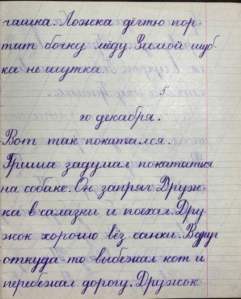 чашка. Ложка дёгтю пор-
тит бочку мёду. Зимой шуб-
ка не шутка.
5.
10 декабря.
Вот так покатался.
Гриша задумал покататься
на собаке. Он запряг Друж-
ка в салазки и поехал. Дру-
жок хорошо вёз санки. Вдруг
откуда-то выбежал кот и
перебежал дорогу. Дружок